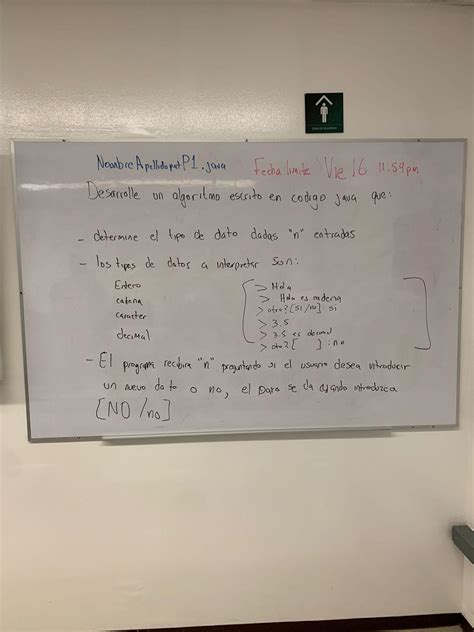 NombreApellidopatP1.java Fecha limite Vie 16 11:59pm
Desarrolle un algoritmo escrito en codigo java que:
- determine el tipo de dato dadas "n" entradas
- los tipos de datos a interpretar son:
Entero
cadena
caracter
decimal
> Hola
> Hola es cadena
> otro? [si/no] si
> 3.5
> 3.5 es decimal
> oto? [ ] : no
- El programa recibira "n" preguntando si el usuario desea introducir
un nuevo dato o no, el paro se da cuando introduzca
[NO/no]